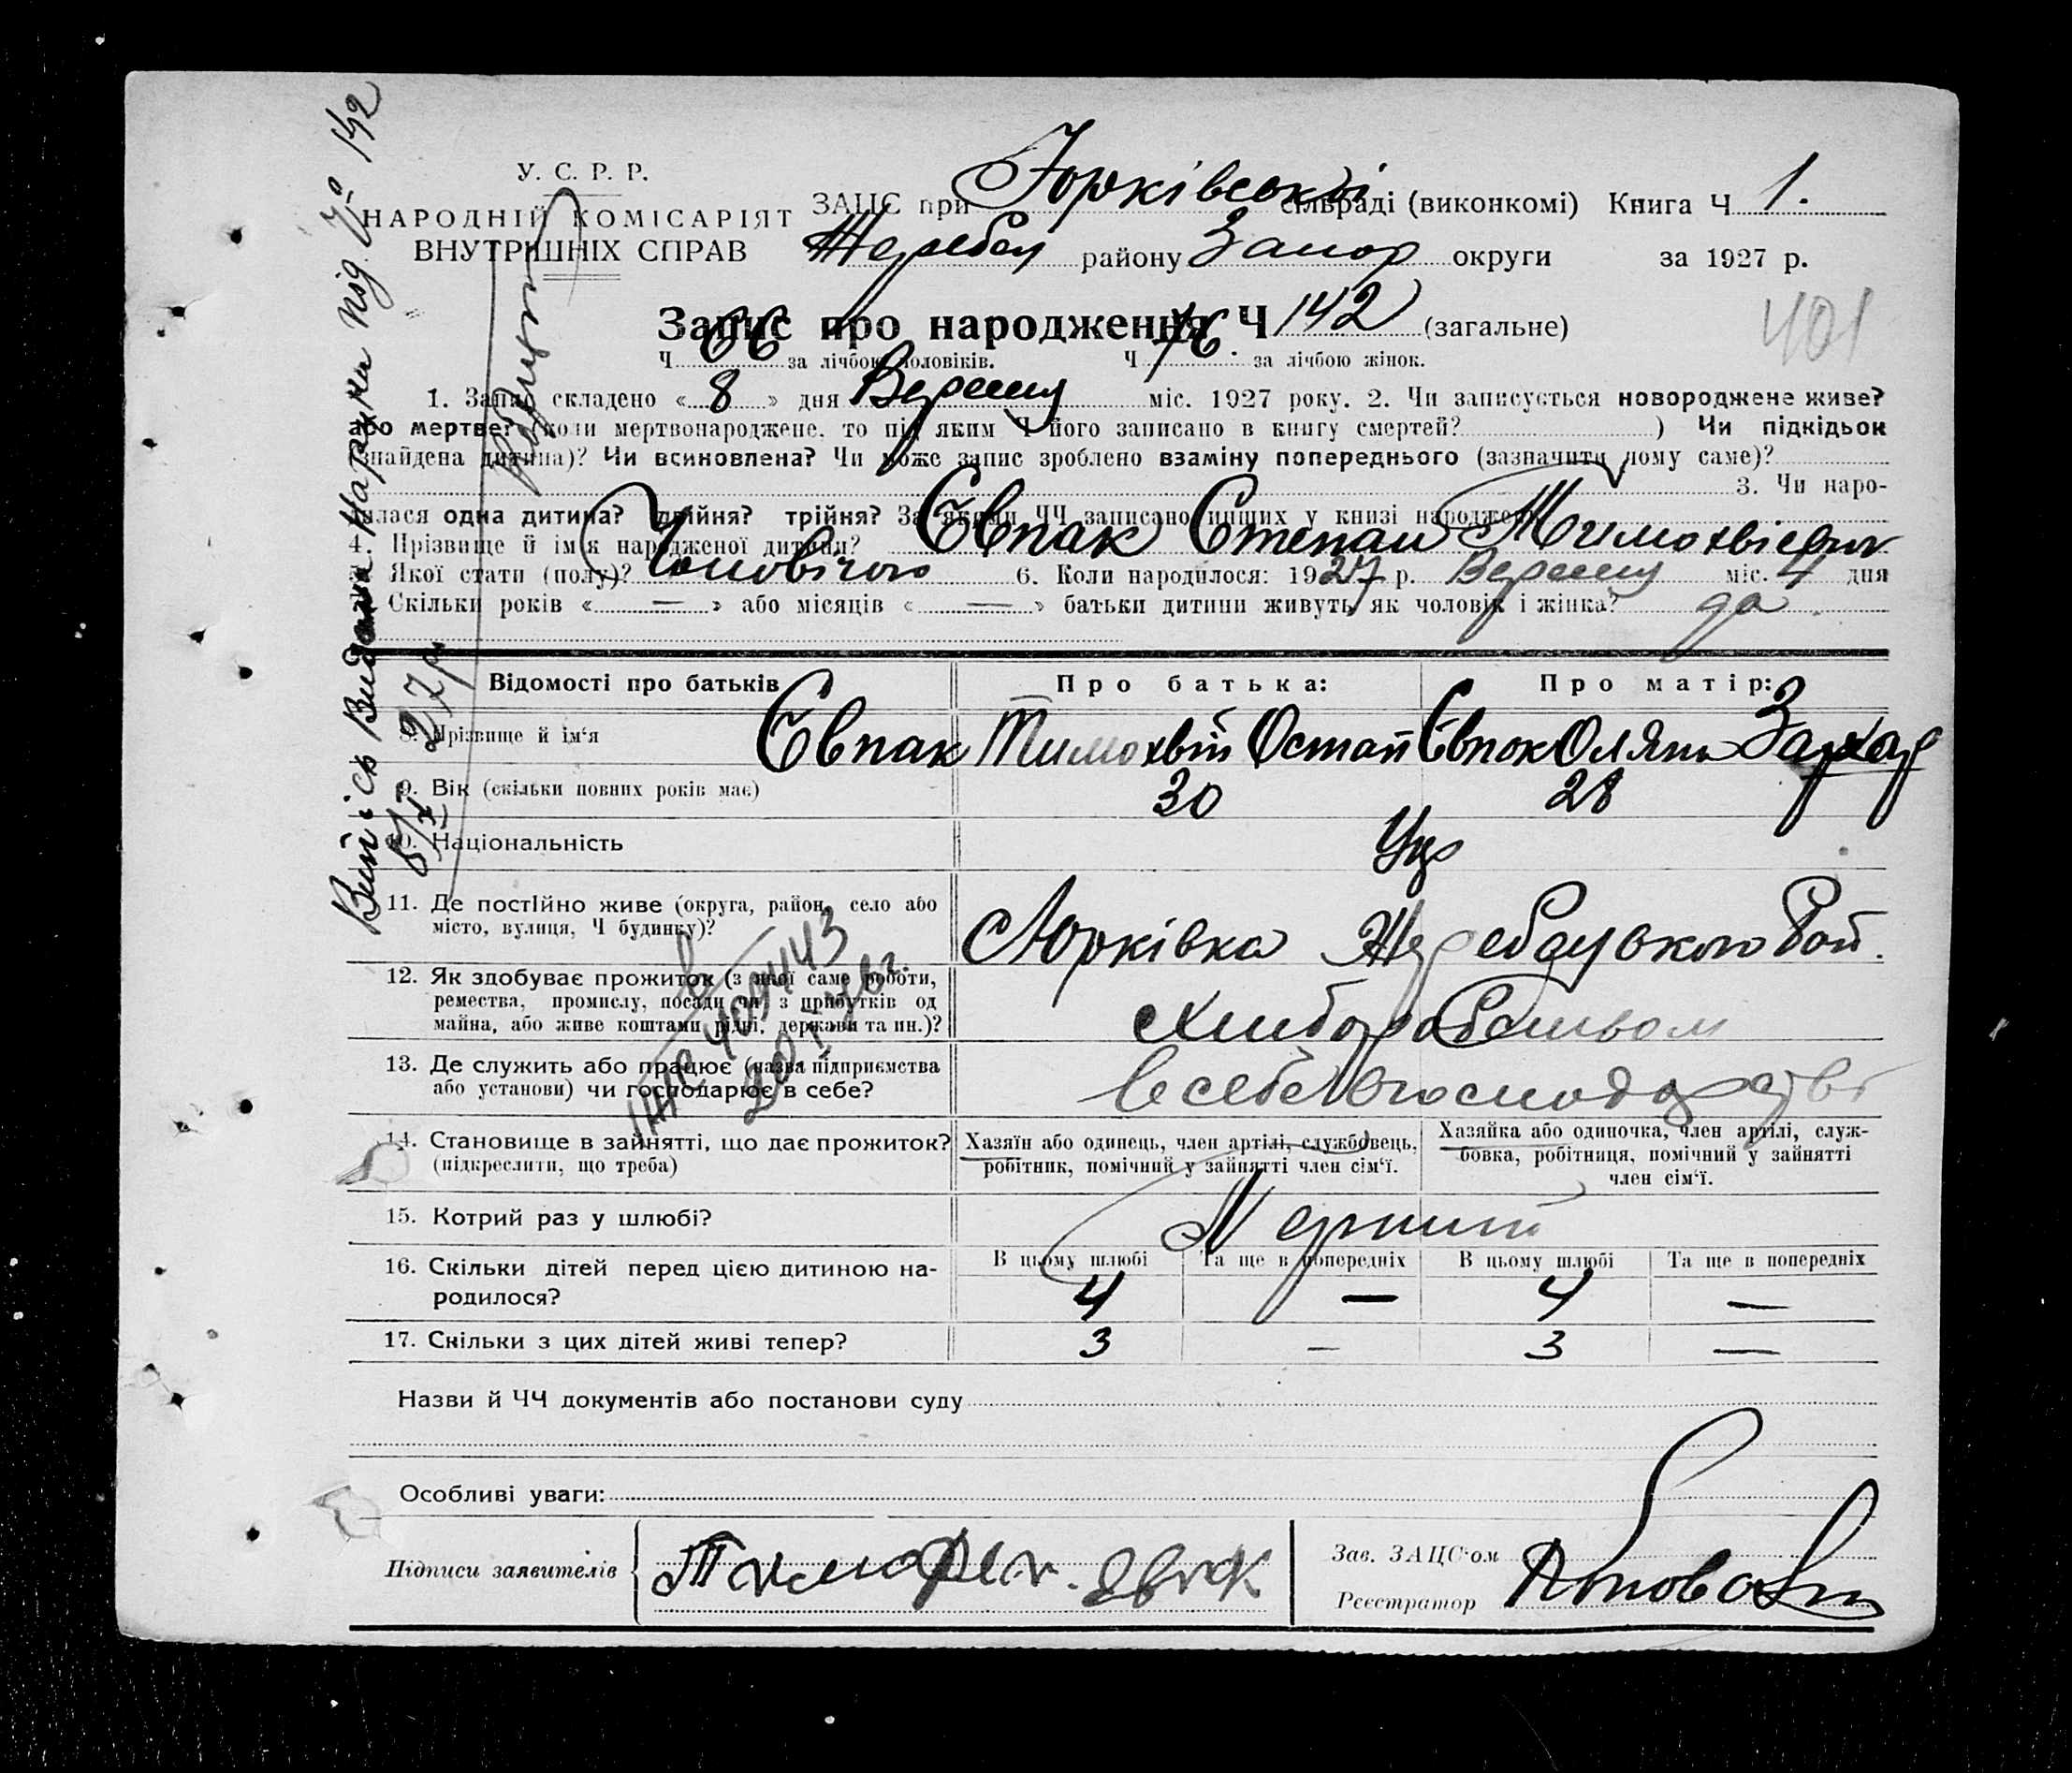 У. С. Р. Р.
НАРОДНІЙ КОМІСАРІЯТ
ВНУТРІШНІХ СПРАВ
ЗАЦС при Юрківській сільраді (виконкомі) Книга Ч 1.
Жеребец району Запор округи за 1927 р.
Запис про народження Ч 142 (загальне)
401
Ч 66 за лічбою чоловіків. Ч 76. за лічбою жінок.
1. Запис складено « 8 » дня Вересня міс. 1927 року. 2. Чи записується новороджене живе?
або мертве? (коли мертвонароджене, то під яким Ч його записано в книгу смертей? ) Чи підкідьок
(знайдена дитина)? Чи всиновлена? Чи може запис зроблено взаміну попереднього (зазначити чому саме)?
3. Чи наро-
дилася одна дитина? двійня? трійня? За якими ЧЧ записано инших у книзі народжень
4. Прізвище й ім'я народженої дитини? Євпак Степан Тимохвієвич
5. Якої стати (полу)? Чоловічого 6. Коли народилося: 1927 р. Вересня міс. 4 дня
7. Скільки років « — » або місяців « — » батьки дитини живуть як чоловік і жінка? да
Відомості про батьків Про батька: Про матір:
8. Прізвище й ім'я Євпак Тимохвій Остап Євпак Оляна Захар
9. Вік (скільки повних років має) 30 28
10. Національність Укр
11. Де постійно живе (округа, район, село або Юрківка Жеребецького Рай.
місто, вулиця, Ч будинку)?
12. Як здобуває прожиток (з якої саме роботи, Хлиборобством
ремества, промислу, посади чи з прибутків од
майна, або живе коштами рідні, держави та ин.)?
13. Де служить або працює (назва підприємства в себе в господарстві
або установи) чи господарює в себе?
14. Становище в зайнятті, що дає прожиток?
(підкреслити, що треба)
Хазяїн або одинець, член артілі, службовець,
робітник, помічний у зайнятті член сім'ї.
Хазяйка або одиночка, член артілі, служ-
бовка, робітниця, помічний у зайнятті
член сім'ї.
15. Котрий раз у шлюбі? Перший
В цьому шлюбі Та ще в попередніх В цьому шлюбі Та ще в попередніх
16. Скільки дітей перед цією дитиною на-
родилося? 4 — 4 —
17. Скільки з цих дітей живі тепер? 3 — 3 —
Назви й ЧЧ документів або постанови суду
Особливі уваги:
Підписи заявителів Тимофей Евпак
Зав. ЗАЦС'ом
Реєстратор
Випісь Видана На руки під № 142